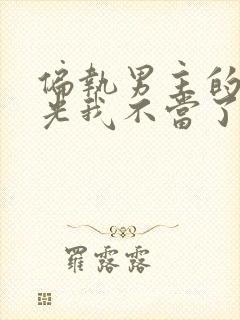 偏執男主的
光我不當了
羅露露